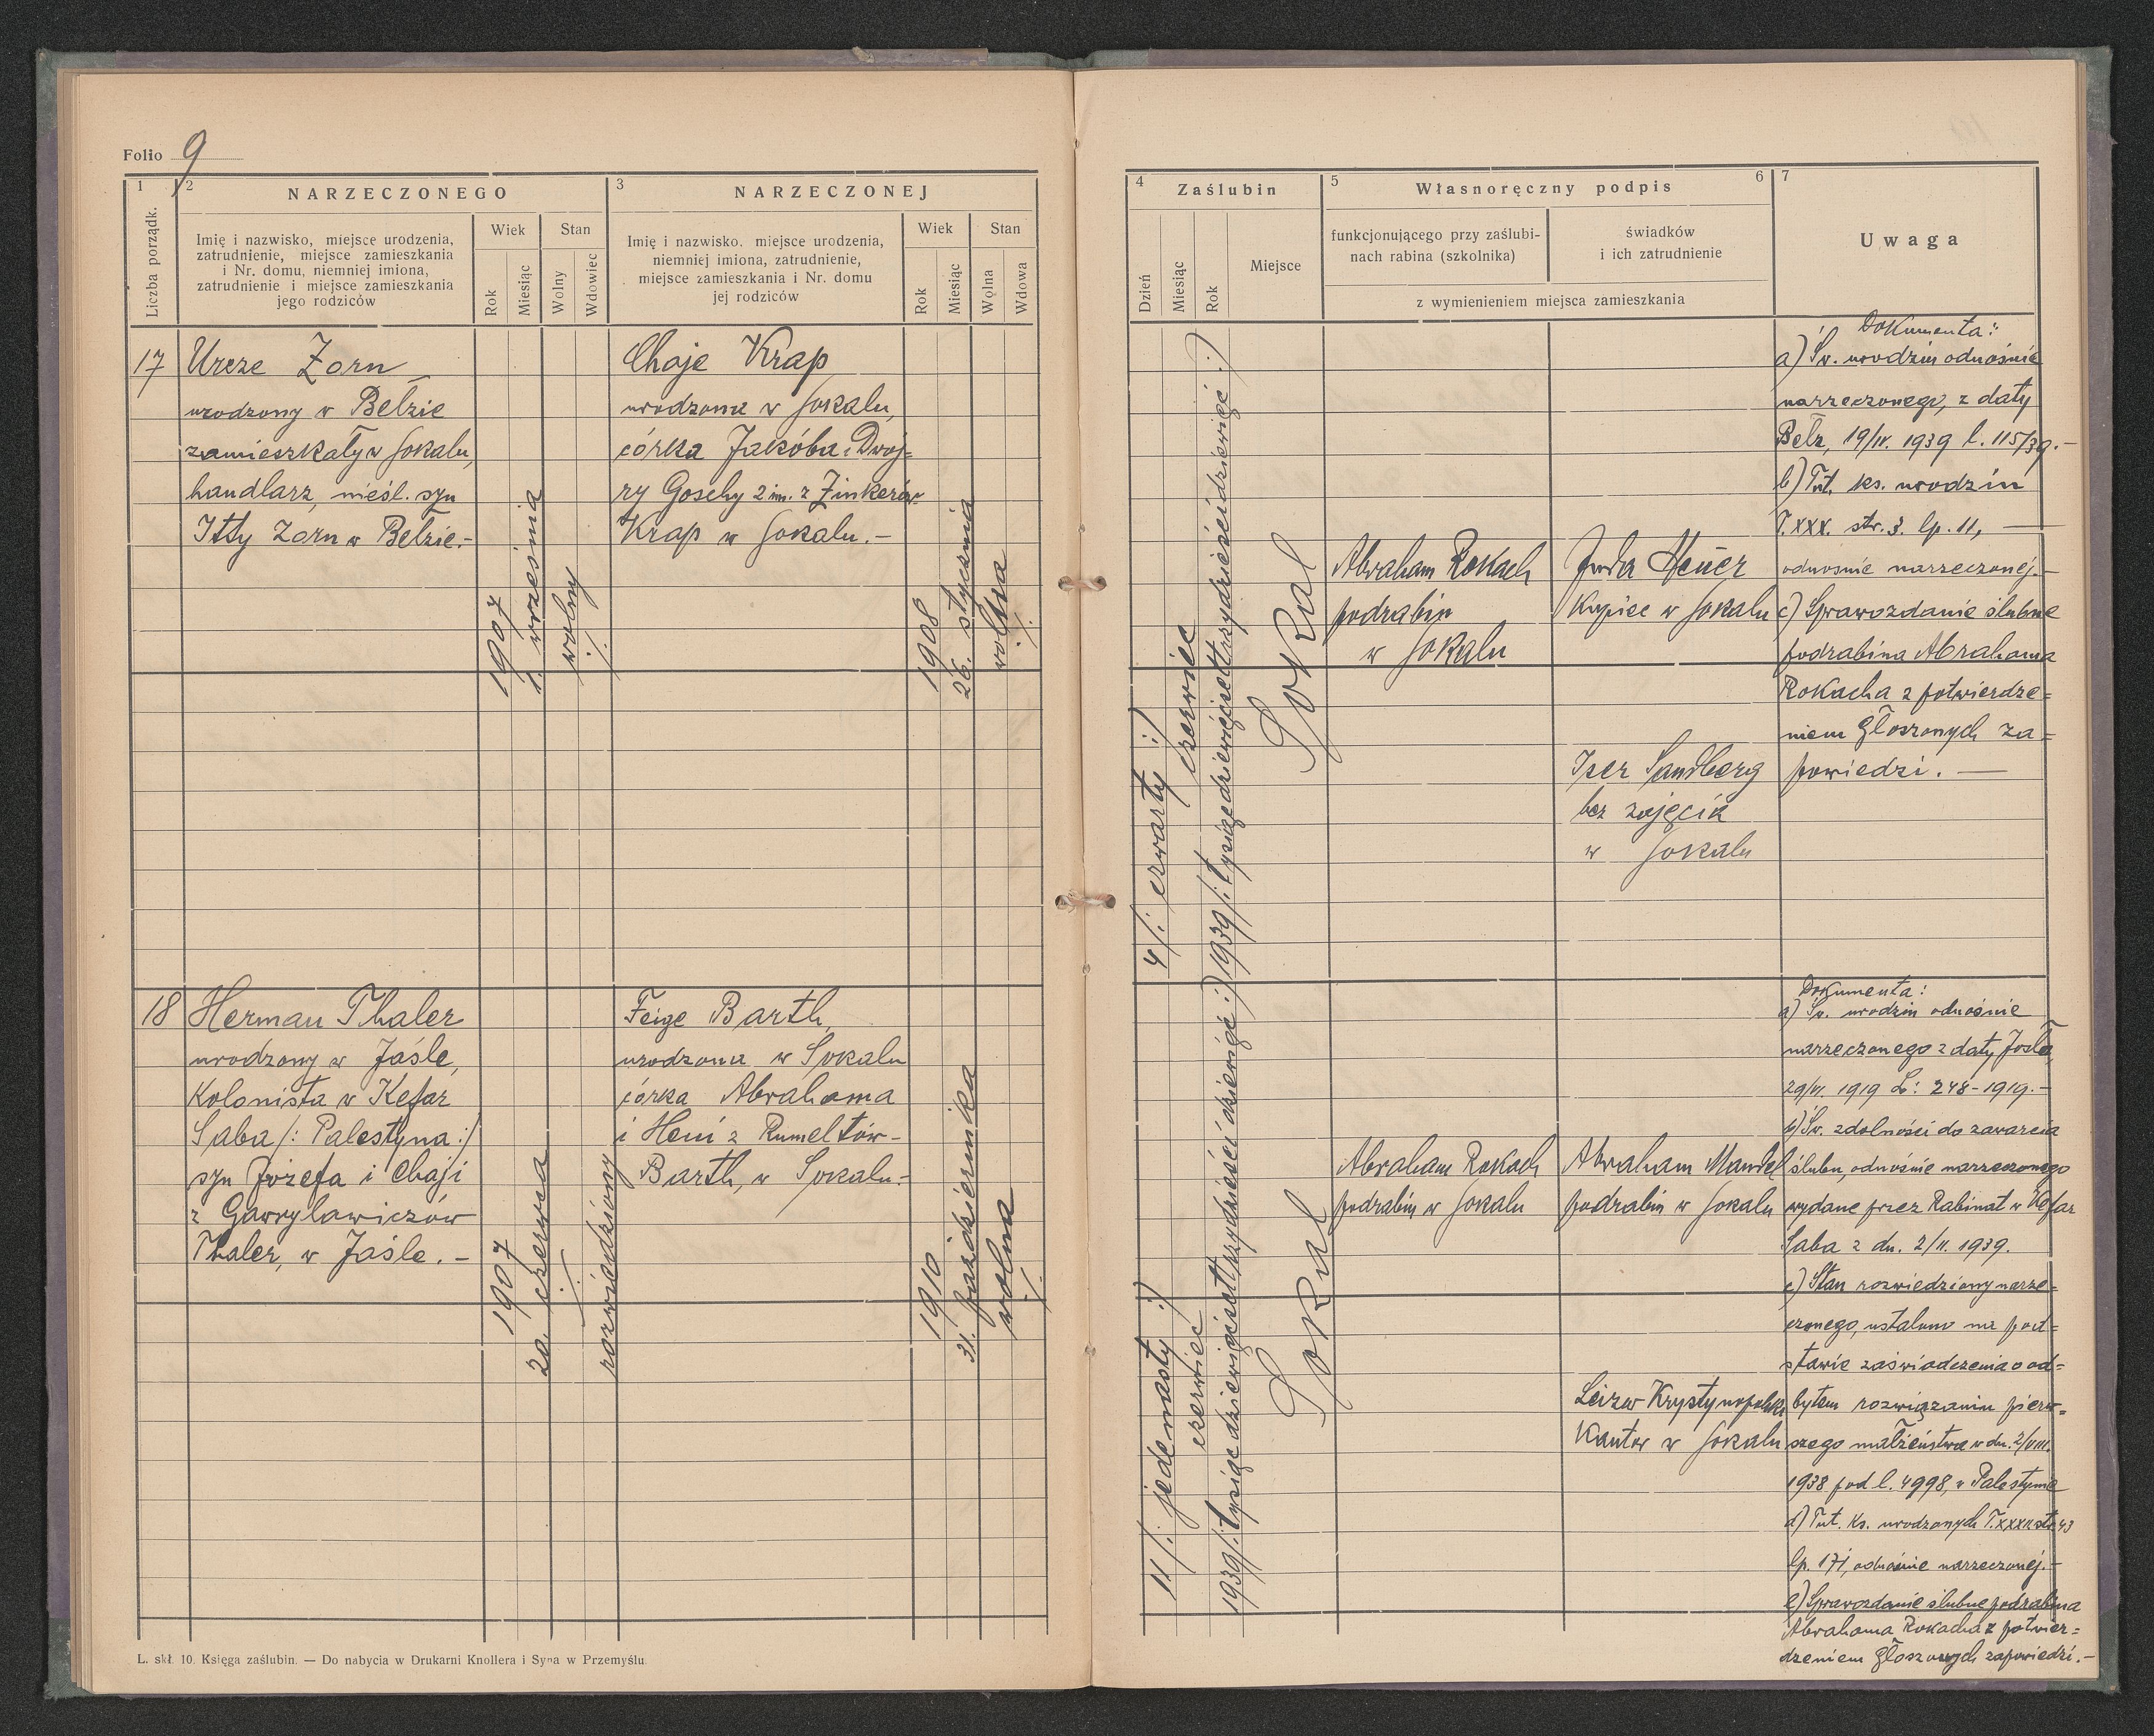 Folio 9
1
Liczba porządk.
2
NARZECZONEGO
Imię i nazwisko, miejsce urodzenia,
zatrudnienie, miejsce zamieszkania
i Nr. domu, niemniej imiona,
zatrudnienie i miejsce zamieszkania
jego rodziców
Wiek
Rok
Miesiąc
Stan
Wolny
Wdowiec
3
NARZECZONEJ
Imię i nazwisko. miejsce urodzenia,
niemniej imiona, zatrudnienie,
miejsce zamieszkania i Nr. domu
jej rodziców
Wiek
Rok
Miesiąc
Stan
Wolna
Wdowa
17
Urcze Zorn
urodzony w Bełzie
zamieszkały w Sokalu,
handlarz, nieśl. syn
Itty Zorn w Bełzie.-
1907
1. września
wolny
Chaje Krap
urodzona w Sokalu,
córka Jakóba i Dwoj=
ry Goschy 2 im. z Zinkerów
Krap w Sokalu.-
1908
26. stycznia
wolna
18
Herman Thaler
urodzony w Jaśle,
Kolonista w Kefar
Saba /: Palestyna :/
syn Józefa i Chaji
z Gawryławiczów
Thaler, w Jaśle.-
1907
20. czerwca
rozwiedziony
Feige Barth
urodzona w Sokalu
córka Abrahama
i Heni z Rumeltów-
Barth, w Sokalu.-
1910
31. października
wolna
L. skł. 10. Księga zaślubin. — Do nabycia w Drukarni Knollera i Syna w Przemyślu.
4
Zaślubin
Dzień
Miesiąc
Rok
Miejsce
5
Własnoręczny podpis
6
funkcjonującego przy zaślubi-
nach rabina (szkolnika)
świadków
i ich zatrudnienie
z wymienieniem miejsca zamieszkania
7
Uwaga
4 /: czwarty :/
czerwiec
1939 /: tysiąc dziewięćset trzydzieści dziewięć :/
Sokal
Abraham Rokach
podrabin
w Sokalu
Juda Heuer
Kupiec w Sokalu
Iser Sandberg
bez zajęcia
w Sokalu
Dokumenta:
a) Św. urodzin odnośnie
narzeczonego, z daty
Bełz, 19/IV. 1939 l. 115/39.-
b) Tut. ks. urodzin
T. XXX. str. 3. lp. 11,
odnośnie narzeczonej.-
c) Sprawozdanie ślubne
podrabina Abrahama
Rokacha z potwierdze=
niem głoszonych za=
powiedzi.-
11 /: jedenasty :/
czerwiec
1939 /: tysiąc dziewięćset trzydzieści dziewięć :/
Sokal
Abraham Rokach
podrabin w Sokalu
Abraham Mandel
podrabin w Sokalu
Leizor Krystynopolski
Kantor w Sokalu
Dokumenta:
a) Św. urodzin odnośnie
narzeczonego z daty Jasło,
29/VI. 1919 L: 248-1919.-
b) Św. zdolności do zawarcia
ślubu, odnośnie narzeczonego
wydane przez Rabinat w Kefar
Saba z dn. 2/II. 1939.
c) Stan rozwiedziony narze=
czonego, ustalono na pod=
stawie zaświadczenia o od=
bytem rozwiązaniu pierw=
szego małżeństwa w dn. 2/VIII.
1938 pod l. 4998, w Palestynie
d) Tut. ks. urodzonych T. XXXII str. 43
lp. 171, odnośnie narzeczonej.-
e) Sprawozdanie ślubne podrabina
Abrahama Rokacha z potwier=
dzeniem głoszonych zapowiedzi.-